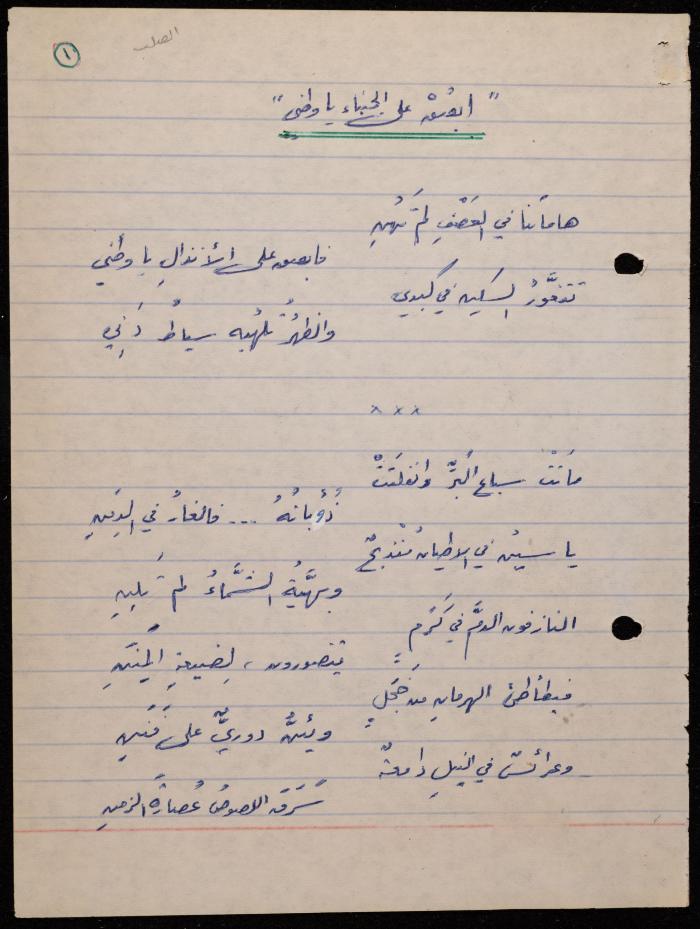 ١
الصلب
"ابصُقْ على الجبناء يا وطني"
هاماتنا في العَصْفِ لم تَهُنِ
فابصق على الأنذالِ يا وطني
تتغوَّرُ السكين في كبدي
والظهرُ تلهبه سياطُ دَني
× × ×
مَاتَتْ سباع البَرِّ وانفلتَتْ
ذُؤبانهُ ... فالغارُ في الدِمَنِ
ياسين في الاطيان مُنْذبحٌ
وبهيَّةُ الشمَّاءُ لم تَلِنِ
النازفون الدمَّ في كَرَمٍ
يتضورون، لِضيعةِ المِنَنِ
فيطأطئ الهرمانِ من خَجَلٍ
ويئنُّ دوريٌّ على فَنَنِ
وعرائسٌ في النيلِ دامعةٌ
سَرَقَ اللصوصُ عُصارَةَ الزمنِ